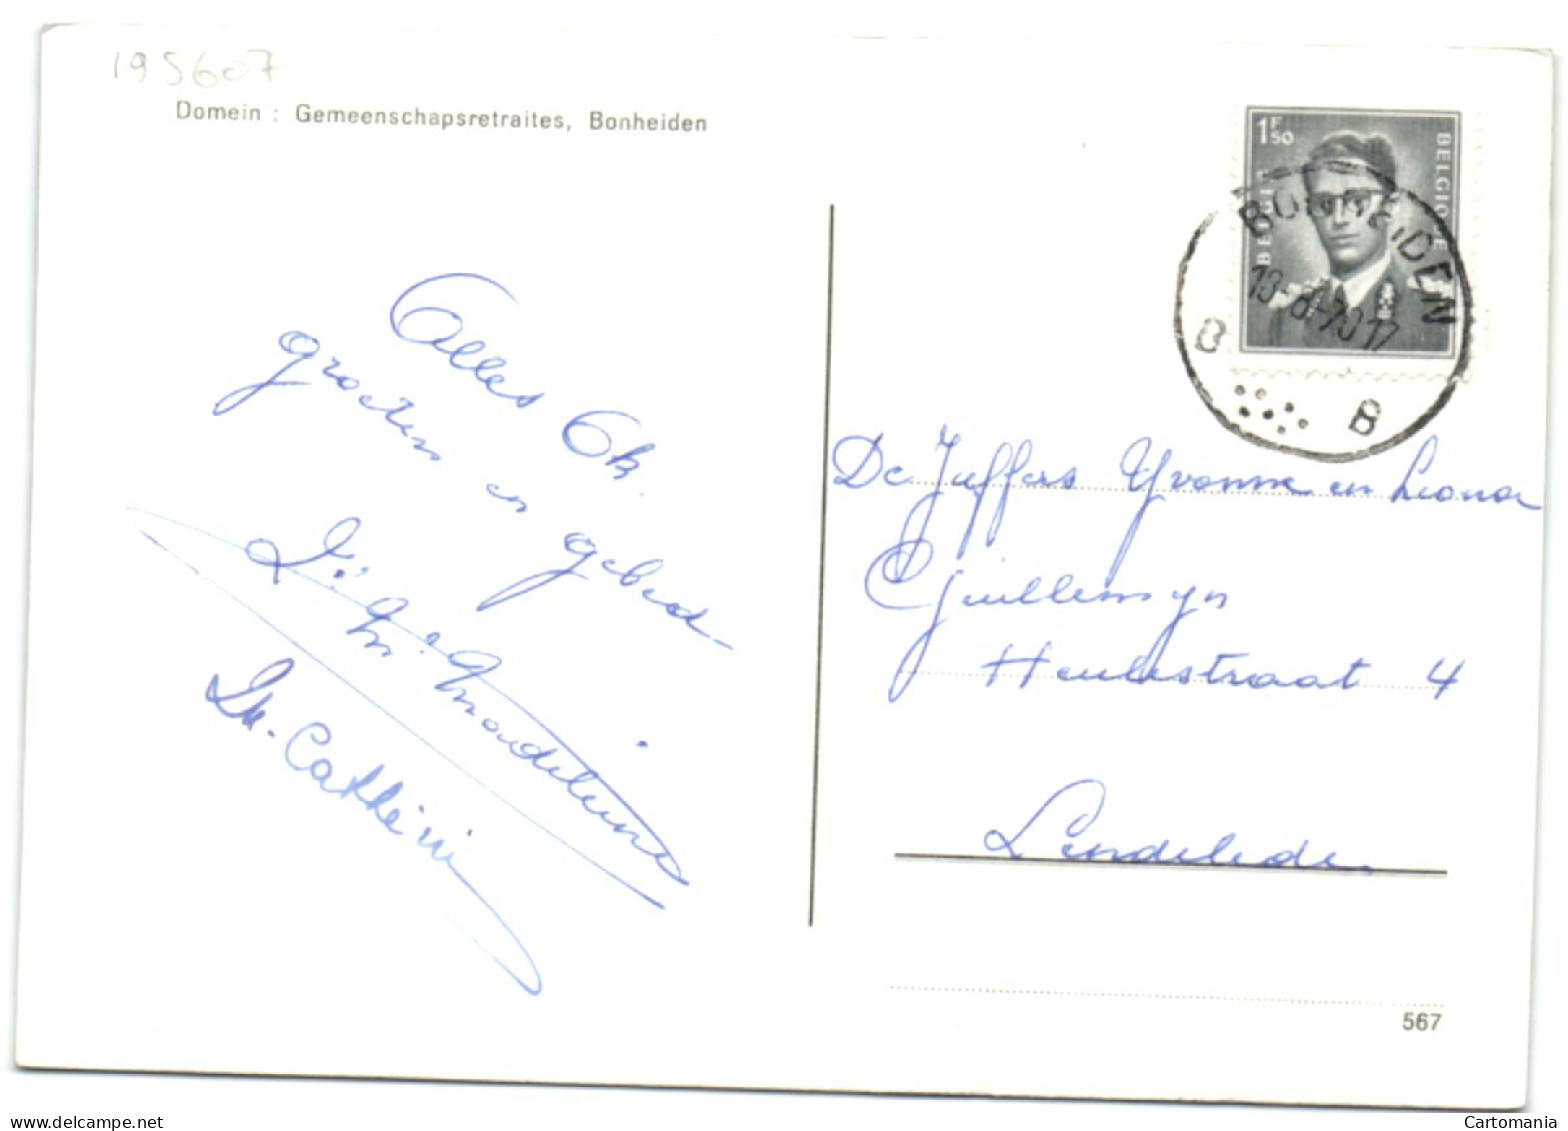 195607
Domein : Gemeenschapsretraites, Bonheiden
1F50
BELGIË
BELGIQUE
BONHEIDEN
13-8-70 17
B B
Alles Ok.
groeten en gebed
Zr. M. Madeleine
Zr. Catherin
De Juffers Yvonne en Leona
Guillemyn
Heulestraat 4
Lendelede
567
www.delcampe.net
Cartomania